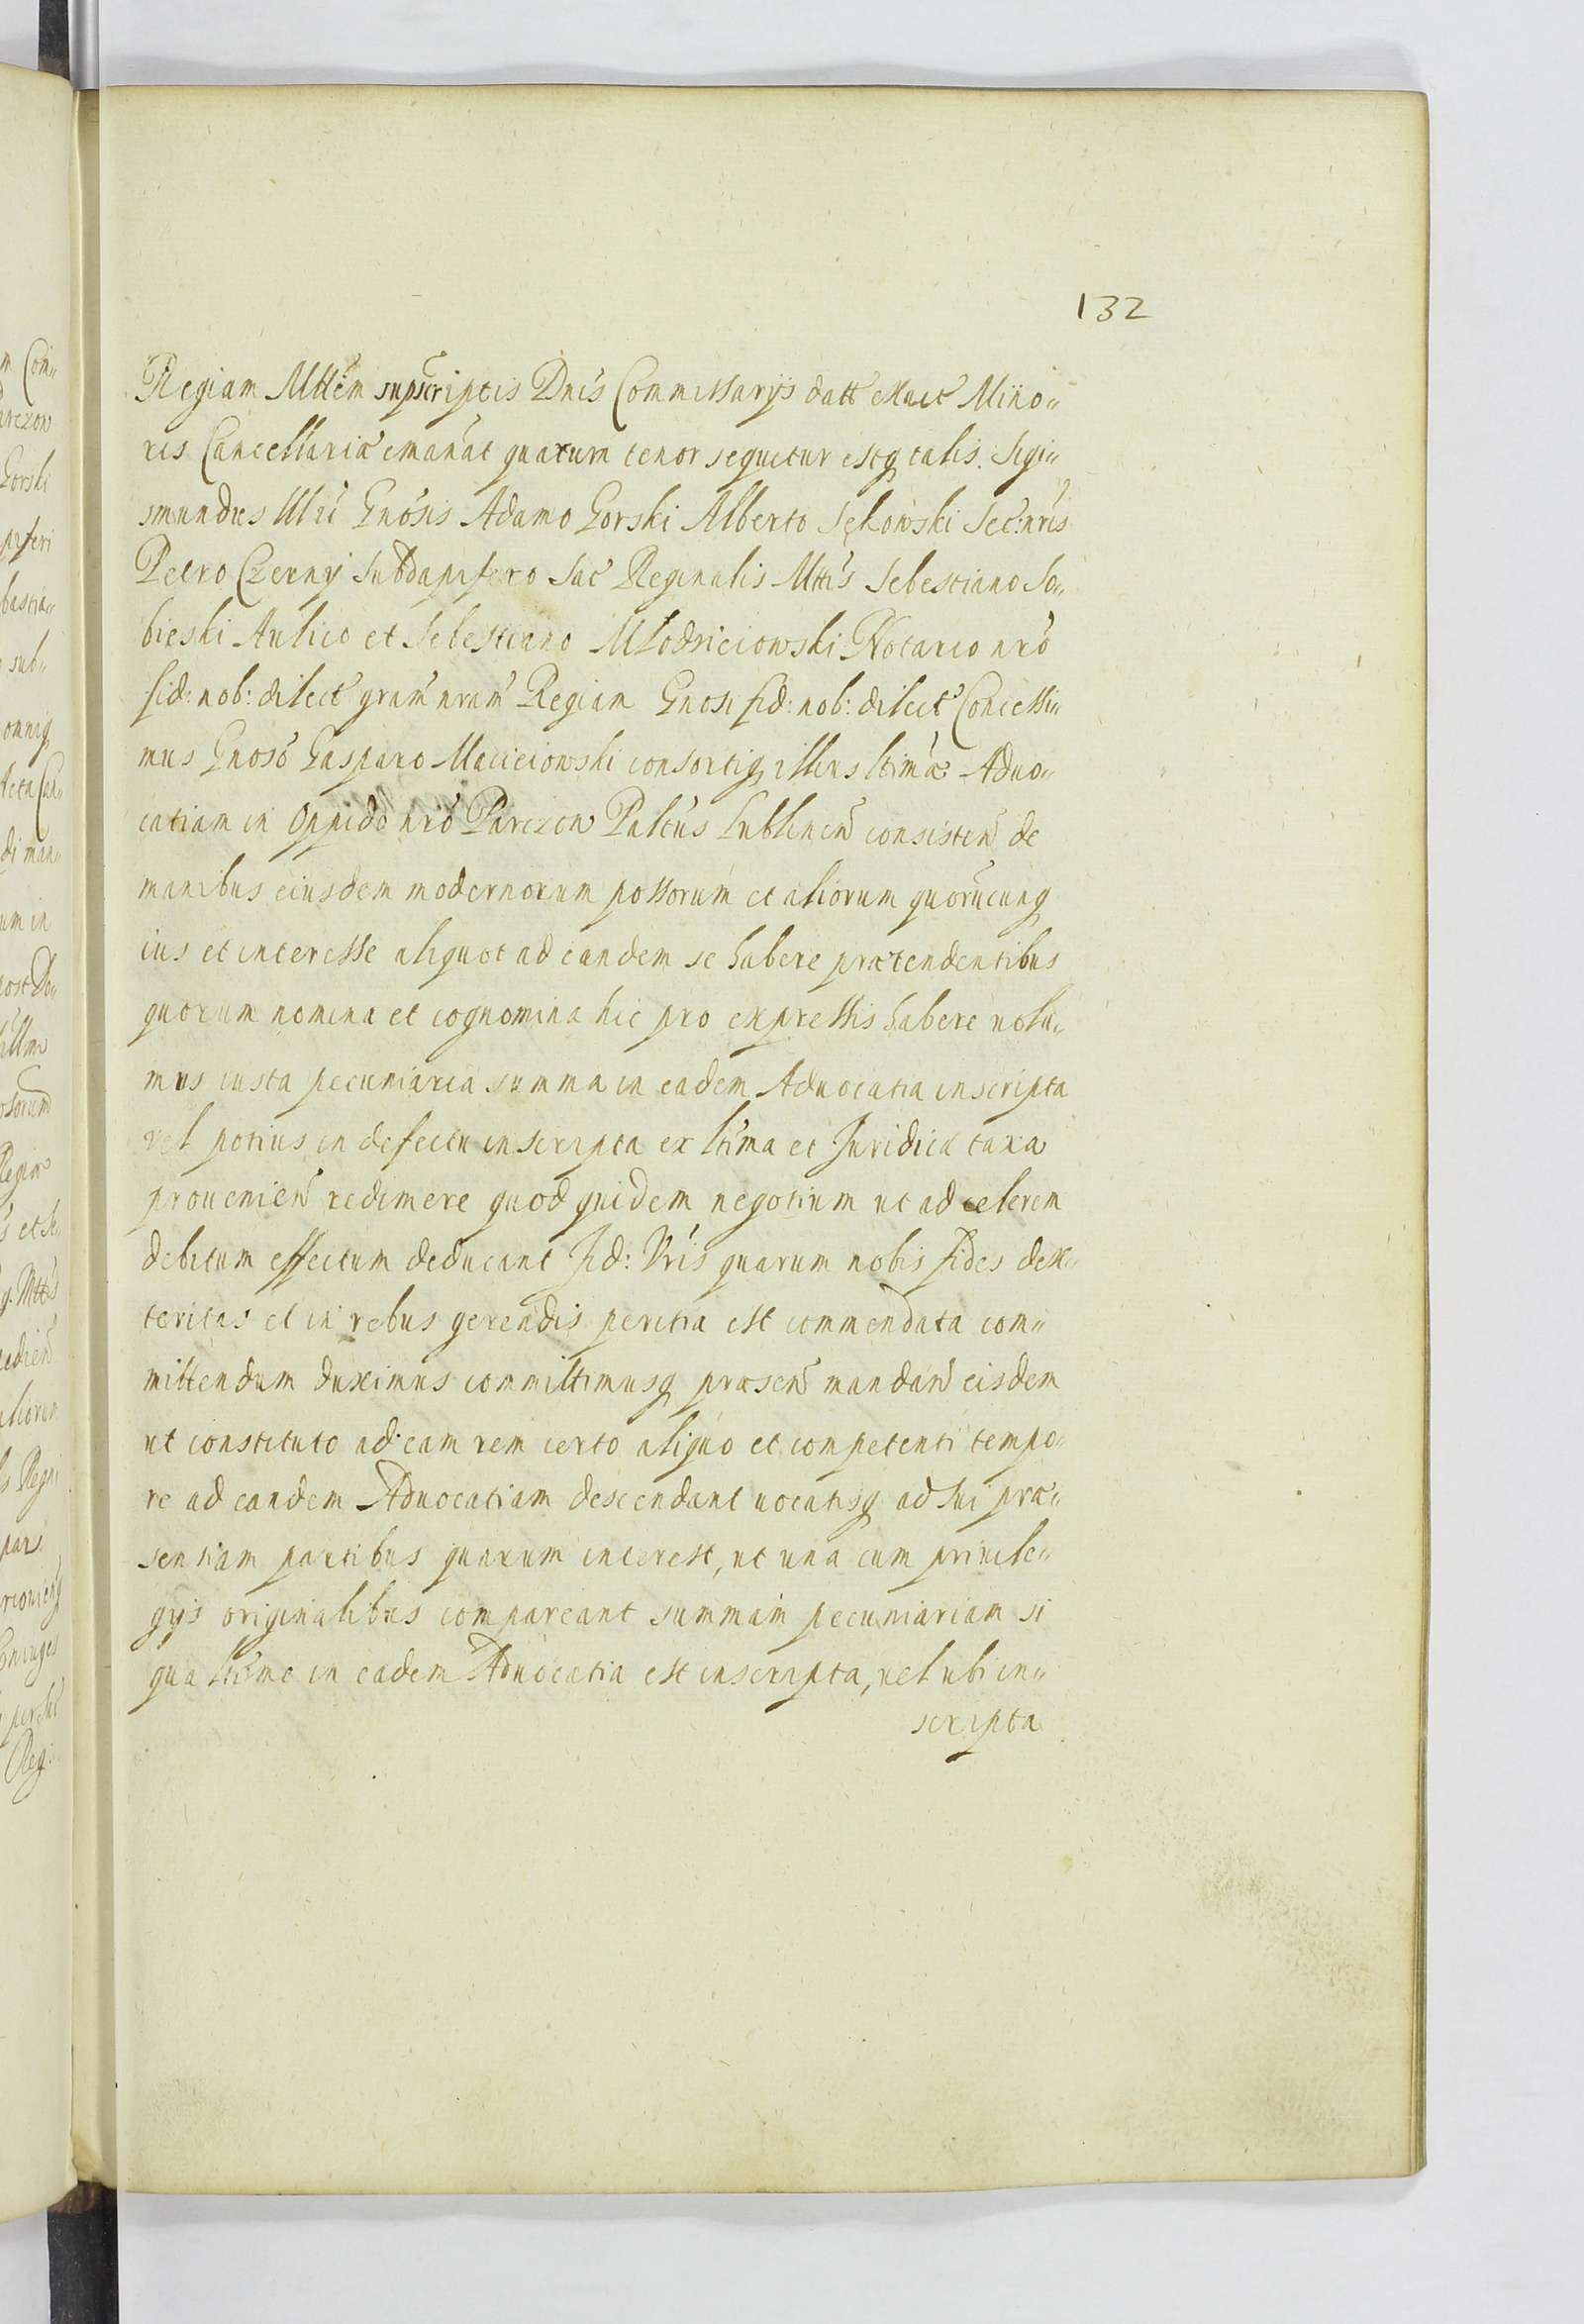 132
Regiam Mttem supscriptis Dnis Commissarijs datt exact Mino„
ris Cancellariæ emanat quarum tenor sequitur estq talis. Sigi„
smundus Gnosis Adamo Gorski Alberto Sękowski Sec: nris
Petro Czerny Subdapifero Sac Reginalis Mttis Sebestiano So„
bieski Aulico et Sebestiano Młodzieiowski Notario nro
fid: nob: dilect gram nram Regiam Gnosi fid: nob: dilect Concessi„
mus Gnoso Gasparo Macieiowski consortiq illius ltima Aduo„
catiam in Oppido nro Parczow Paltus Lublinen consisten de
manibus eiusdem modernorum possorum et aliorum quorucunq
ius et interesse aliquot ad eandem se habere prætendentibus
quorum nomina et cognomina hic pro expressis habere uolu„
mus iusta pecuniaria summa in eadem Aduocatia inscripta
vel potius in defectu inscripta ex ltima et Juridica taxa
prouenien redimere quod quidem negotium ut ad celerem
debitum effectum deducant fid: Vris quarum nobis fides dex„
teritas et in rebus gerendis peritia est commendata com„
mittendum duximus committimusq præsen mandan eisdem
ut constituto ad eam rem certo aliquo et competenti tempo„
re ad eandem Aduocatiam descendant uocatisq ad sui præ„
sentiam partibus quarum interest, ut una cum priuile„
gijs originalibus compareant summam pecuniariam si
qua ltime in eadem Aduocatia est inscripta, uel ubi in„
scripta